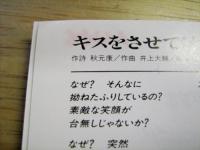 キスをさせて
作詩 秋元康／作曲 井上大輔／
なぜ？ そんなに
拗ねたふりしているの？
素敵な笑顔が
台無しじゃないか？
なぜ？ 突然